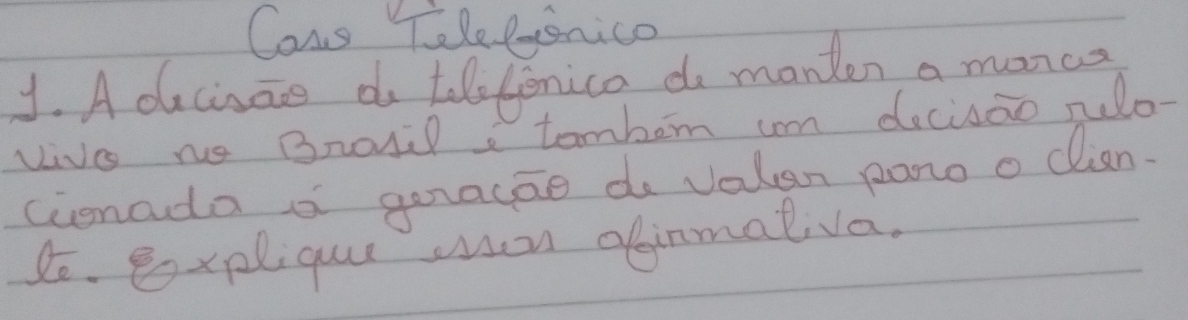 Caso Telefônico
1. A decisão da telefônica de manter a marca
vivo no Brasil é também um decisão rela-
cionada à geração de valor para o clien-
te. Explique essa afirmativa.